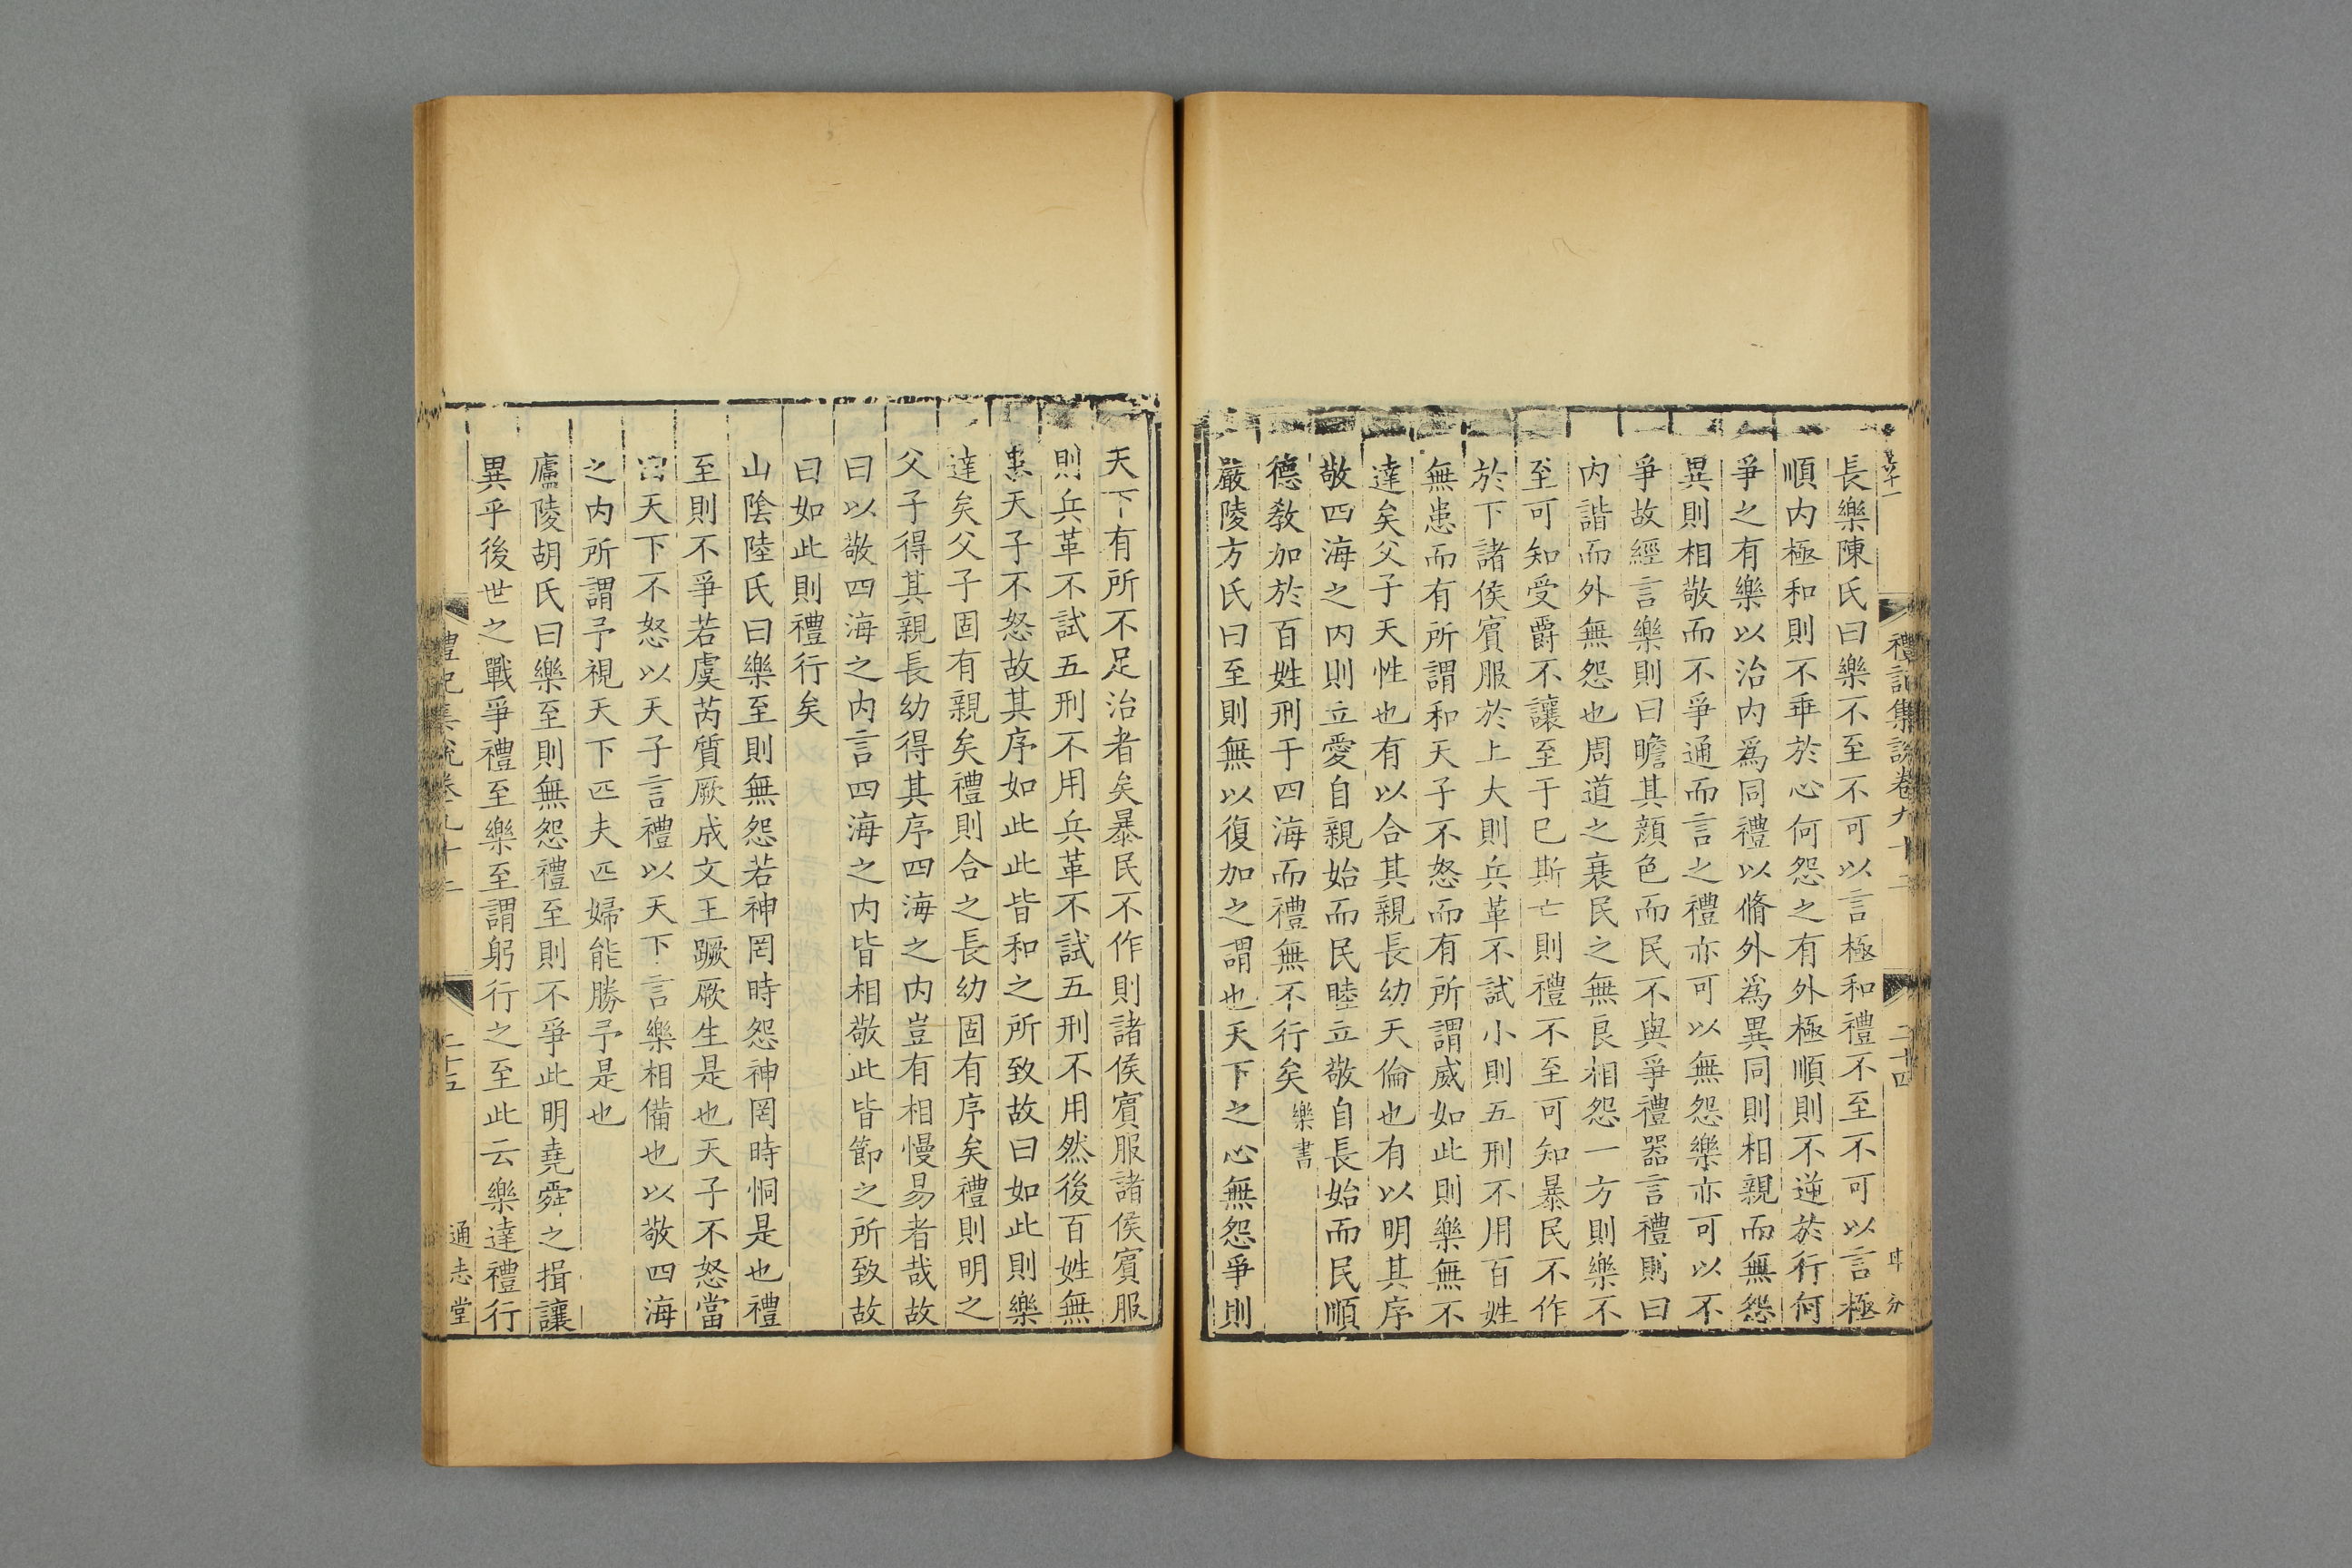 禮記集說卷九十二
二十四
長樂陳氏曰樂不至不可以言極和禮不至不可以言極
順内極和則不乖於心何怨之有外極順則不逆於行何
爭之有樂以治内爲同禮以脩外爲異同則相親而無怨
異則相敬而不爭通而言之禮亦可以無怨樂亦可以不
爭故經言樂則曰瞻其顔色而民不與爭禮器言禮則曰
内諧而外無怨也周道之衰民之無良相怨一方則樂不
至可知受爵不讓至于已斯亡則禮不至可知暴民不作
於下諸侯賓服於上大則兵革不試小則五刑不用百姓
無患而有所謂和天子不怒而有所謂威如此則樂無不
達矣父子天性也有以合其親長幼天倫也有以明其序
敬四海之内則立愛自親始而民睦立敬自長始而民順
德教加於百姓刑于四海而禮無不行矣樂書
嚴陵方氏曰至則無以復加之謂也天下之心無怨爭則
天下有所不足治者矣暴民不作則諸侯賓服諸侯賓服
則兵革不試五刑不用兵革不試五刑不用然後百姓無
患天子不怒故其序如此此皆和之所致故曰如此則樂
達矣父子固有親矣禮則合之長幼固有序矣禮則明之
父子得其親長幼得其序四海之内豈有相慢易者哉故
曰以敬四海之内言四海之内皆相敬此皆節之所致故
曰如此則禮行矣
山陰陸氏曰樂至則無怨若神罔時怨神罔時恫是也禮
至則不爭若虞芮質厥成文王蹶厥生是也天子不怒當
天下不怒以天子言禮以天下言樂相備也以敬四海
之内所謂予視天下匹夫匹婦能勝予是也
廬陵胡氏曰樂至則無怨禮至則不爭此明堯舜之揖讓
異乎後世之戰爭禮至樂至謂躬行之至此云樂達禮行
禮記集說卷九十二
二十五
通志堂